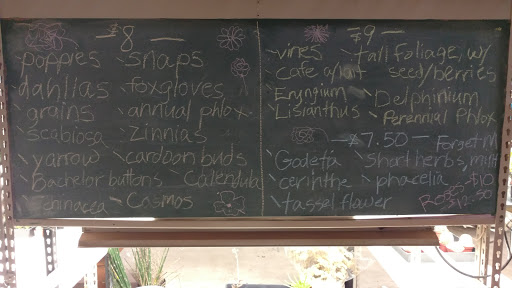 $8
poppies
snaps
dahlias
foxgloves
grains
annual phlox
scabiosa
Zinnias
yarrow
cardoon buds
Bachelor buttons
Calendula
Echinacea
Cosmos
$9
vines
tall foliage, w/
cafe au lait
seed/berries
Eryngium
Delphinium
Lisianthus
Perennial Phlox
$7.50
Forget M
Godetia
Short herbs, mint
cerinthe
phacelia
tassel flower
$10
$12.50